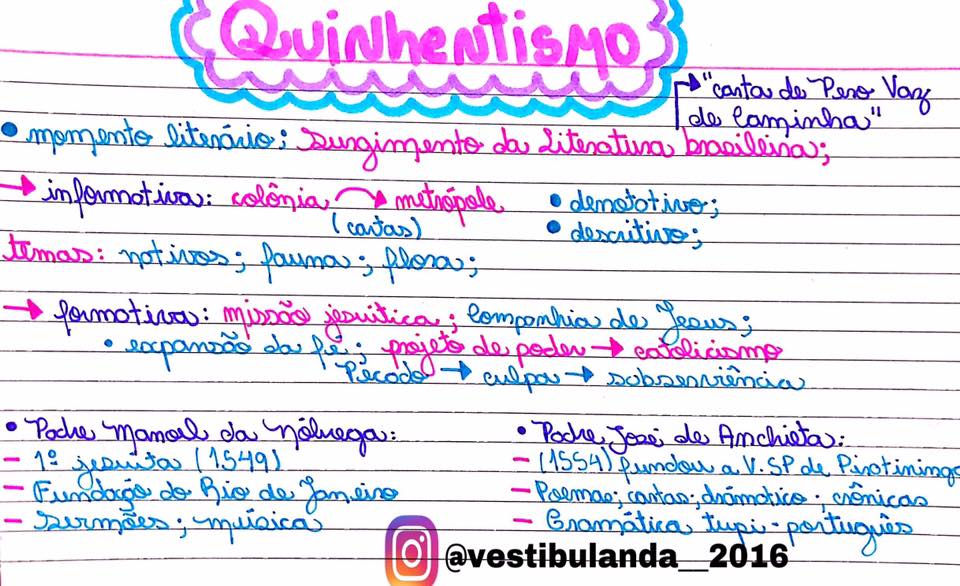 Quinhentismo
"carta de Pero Vaz
de Caminha"
• momento literário; Surgimento da Literatura brasileira;
→ informativa: colônia → metrópole • denotativo;
(cartas) • descritivo;
temas: nativos; fauna; flora;
→ formativa: missão jesuítica; Companhia de Jesus;
• expansão da fé; projeto de poder → catolicismo
Pecado → culpa → subserviência
• Padre Manoel da Nóbrega:
– 1º jesuíta (1549)
– Fundação do Rio de Janeiro
– Sermões; música
• Padre José de Anchieta:
– (1554) fundou a V. SP de Piratininga
– Poemas; cartas; dramático; crônicas
– Gramática tupi-português
@vestibulanda__2016